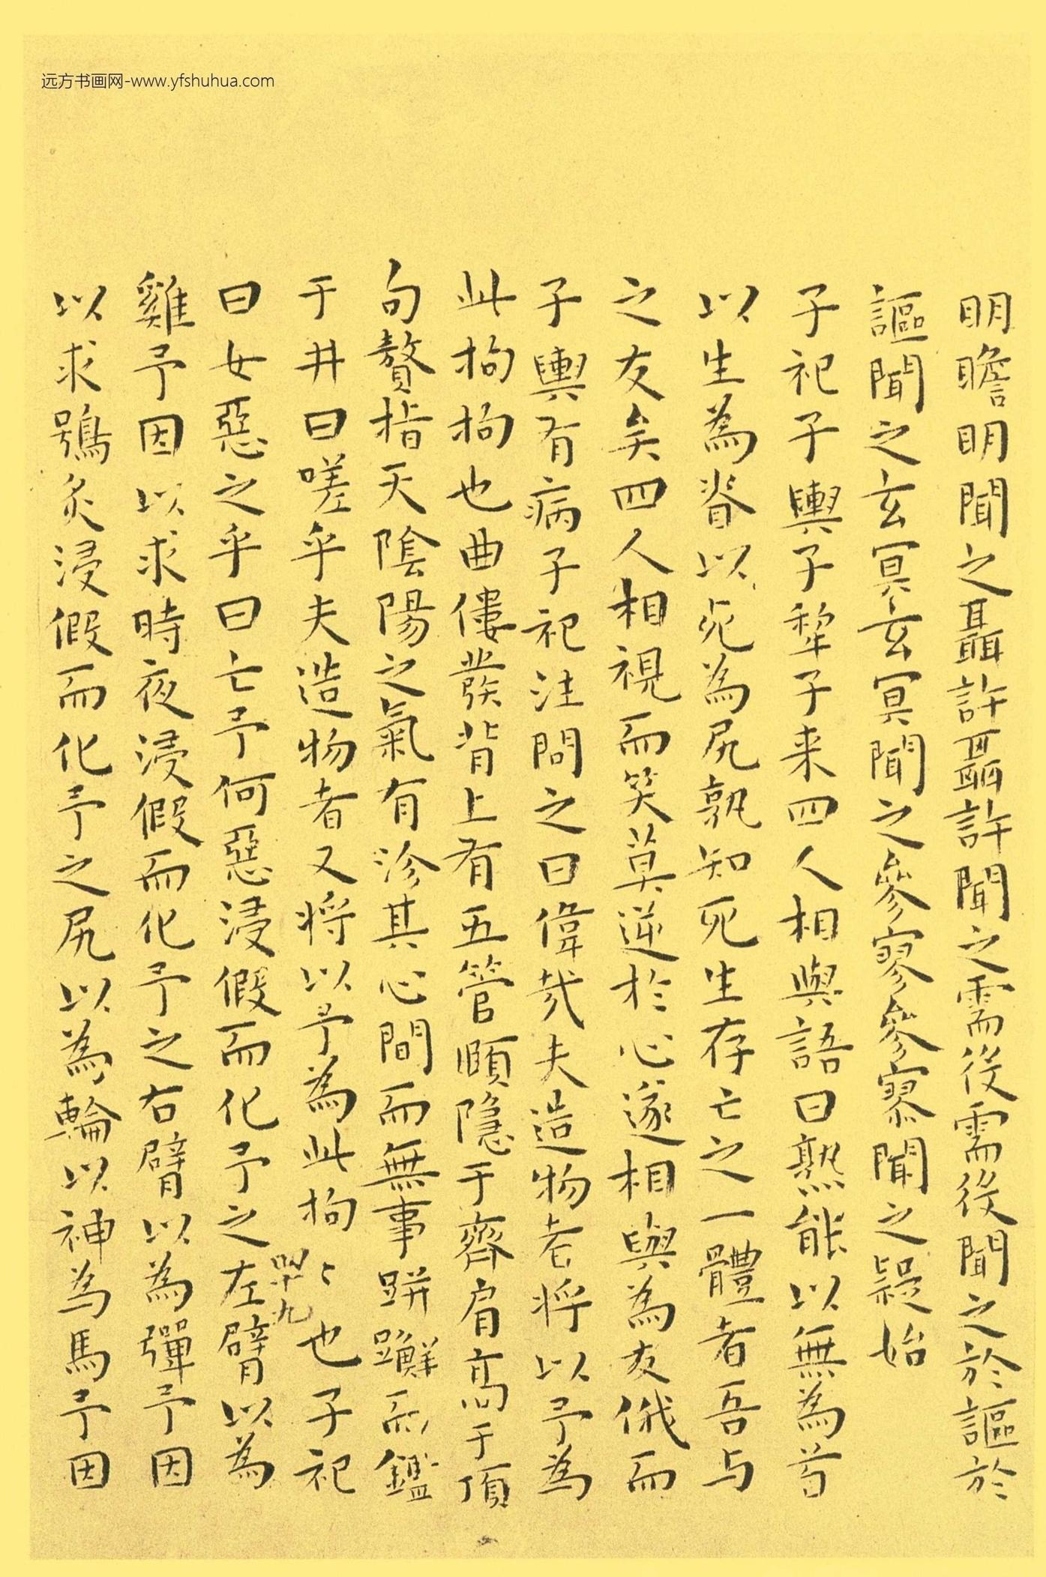 远方书画网-www.yfshuhua.com
明瞻明聞之聶許聶許聞之需役需役聞之於謳於
謳聞之玄冥玄冥聞之參寥參寥聞之疑始
子祀子輿子犂子来四人相與語曰熟能以無為首
以生為脊以死為尻孰知死生存亡之一體者吾与
之友矣四人相視而笑莫逆於心遂相與為友俄而
子輿有病子祀往問之曰偉哉夫造物者将以予為
此拘拘也曲僂發背上有五管頤隠于齊肩高于頂
句贅指天陰陽之氣有沴其心間而無事跰𨇤而鑑
于井曰嗟乎夫造物者又将以予為此拘〻也子祀
曰女惡之乎曰亡予何惡浸假而化予之左臂以為
雞予因以求時夜浸假而化予之右臂以為彈予因
以求鴞炙浸假而化予之尻以為輪以神為馬予因